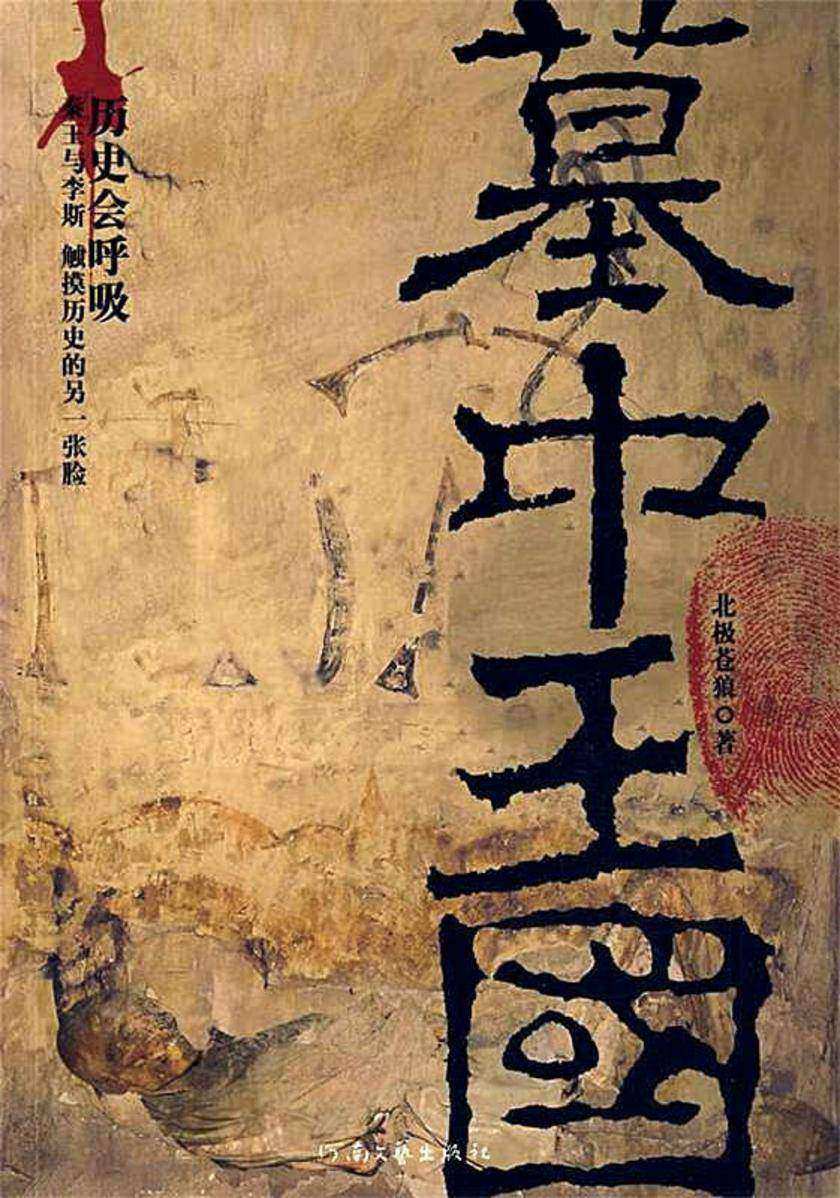 墓中王國
北极苍狼○著
历史会呼吸
秦王与李斯 触摸历史的另一张脸
河南文艺出版社